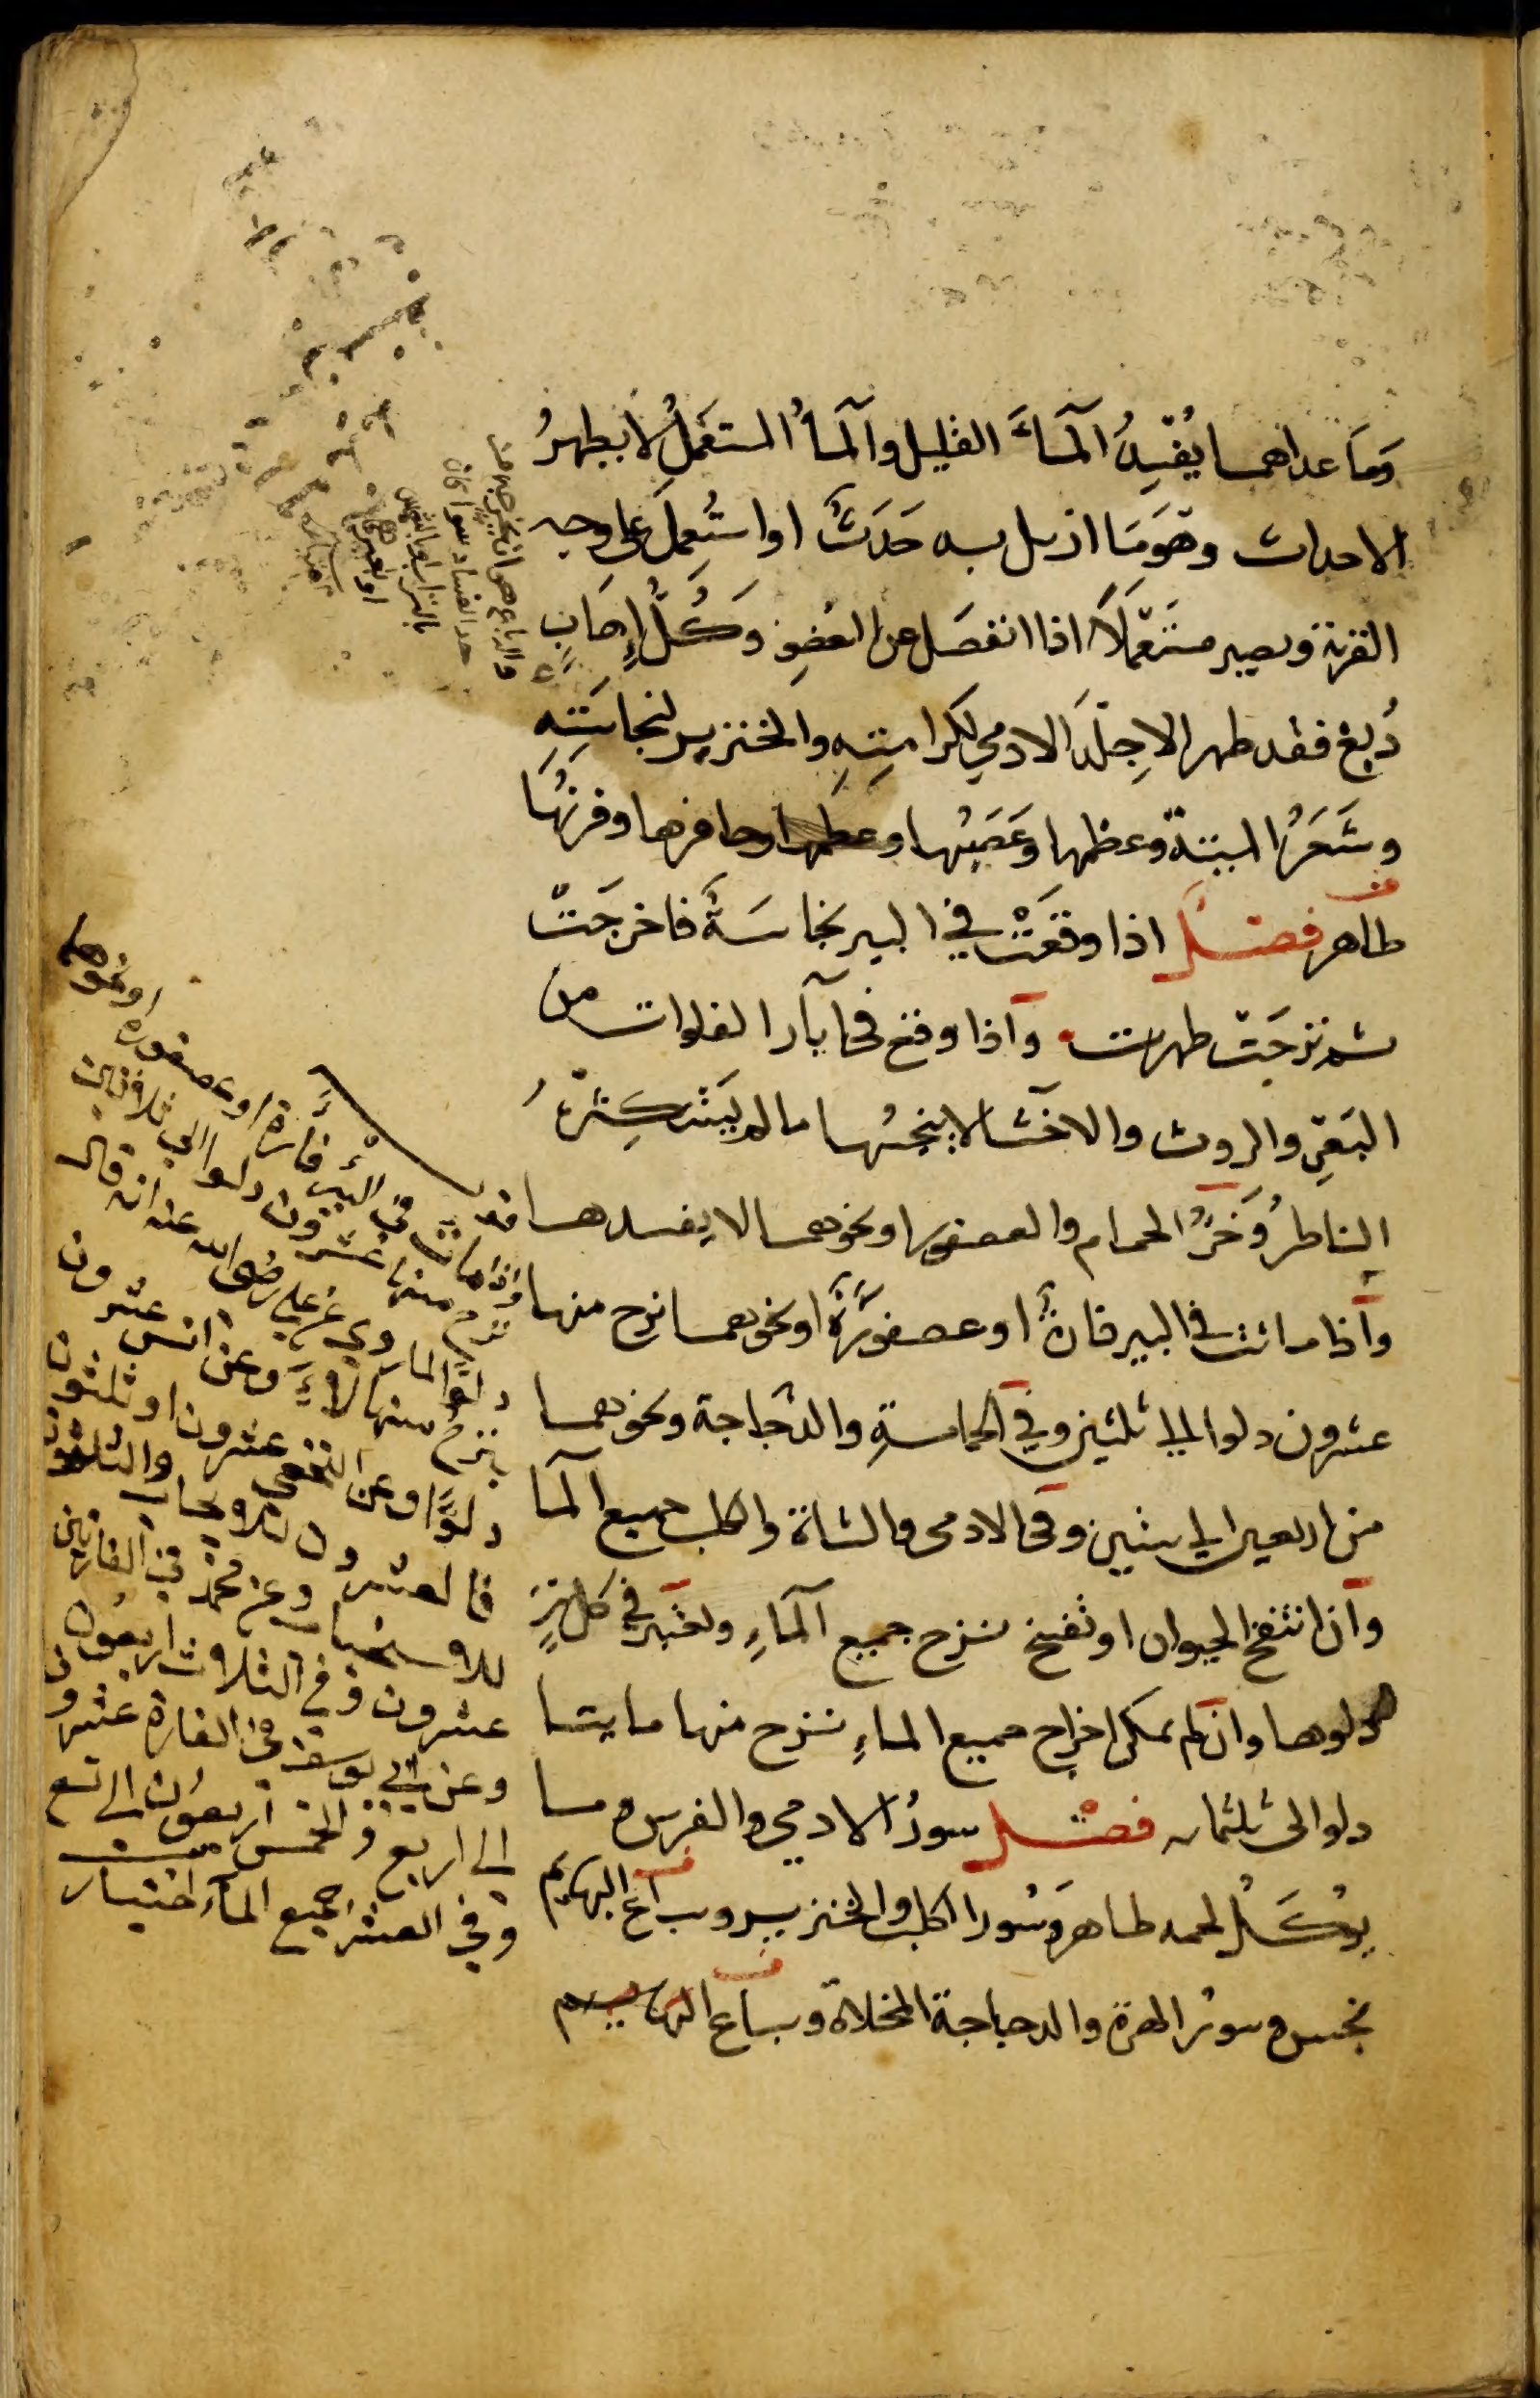 وَمَا عداهما يُفْسِدُ آلمَاءَ القليل وآلمأُ المستعمَلُ لا يطهرُ
الاحداث وهَوَمَا ازيل به حَدَثٌ او استُعمِلَ على وجه
القربة ويصير مستعمَلاً اذا انفصَل عن العُضوِ وَكُلُّ إِهَابٍ
دُبِغَ فقد طهر الا جِلْدَ الادمي لكرامتِهِ والخنزير لنجاسَتِهِ
وشَعَرُ الميتة وعظمها وَعَصَبُها وحافرها وقرنُهَا
طاهر فصْل اذا وقعَتْ في البير نجاسَةٌ فاخرجَتْ
ثم نزحَتْ طهرت وَاذا وقع في آبار الفلوات من
البَعْرِ والروث والاخثا لا ينجسُها ما لم يَسْتكثِرْهُ
الناظرُ وَخَرْؤُ الحمام والعصفور ونحوهما لا يفسدها
وَاذا ماتت في البير فارةٌ او عصفوَرَةٌ او نحوهما نزح منها
عشرون دلوا الى ثلثين وفي الحمامةِ والدَّجاجة ونحوهما
من اربعين الى ستين وفي الادمي والشاة والكلب جميع آلما
وَان انتفخ الحيوان او تفسخ نزح جميع آلماءِ ويعتبر في كل بيرٍ
دلوها وان لم يمكن اخراج جميع الماءِ نزح منها مايتا
دلو الى ثلثمايه فصْل سورُ الادمي والفرس وما
يؤكَلُ لحمه طاهر وَسُور الكلب والخنزير وسباع البهايم
نجس وسورُ الهرة والدجاجة المخلاة وسباع
والدباغ هو ان يخرجه من
حد الفساد سوا كان
بالتراب او بالشمس
او بغيرهما
واذا ماتت في البئر فأرة او عصفورة او نحوهما
نزح منها عشرون دلوا الى ثلاثين
دلوًا لما روي عن علي رضي الله عنه انه قال
ينزح منها دلاءً وعن انس عشرون
دلوًا وعن النخعي عشرون او ثلثون
فالعشرون للايجاب والثلثون
للاستحباب وعن محمد في الفارتين
عشرون وفي الثلاث اربعون
وعن ابي يوسف في الفارة عشرون
الى اربع وفي الخمس اربعون الى تسع
وفي العشر جميع الماء اختيار